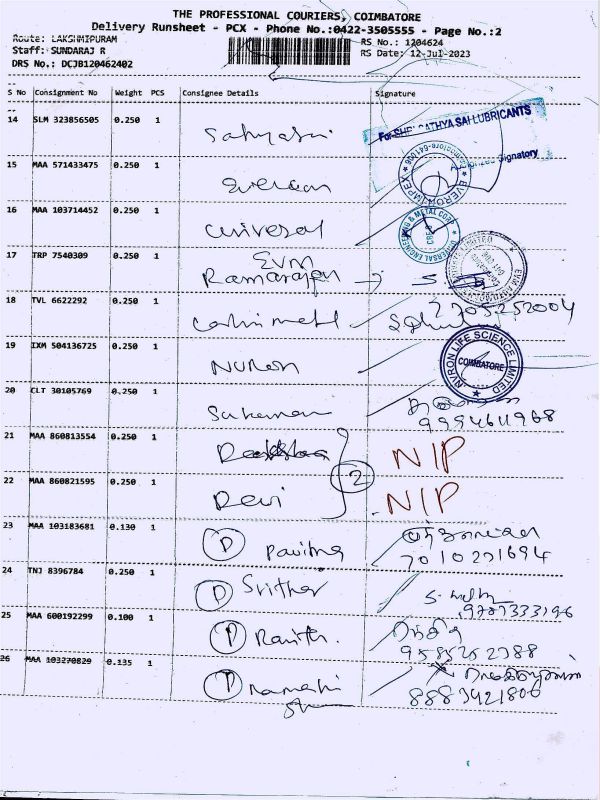 THE PROFESSIONAL COURIERS, COIMBATORE
Delivery Runsheet - PCX - Phone No.:0422-3505555 - Page No.:2
Route: LAKSHMIPURAM
Staff: SUNDARAJ R
DRS No.: DCJB120462402
RS No.: 1204624
RS Date: 12-Jul-2023
S No Consignment No Weight PCS Consignee Details Signature
14 SLM 323856505 0.250 1
For SHRI SATHYA SAI LUBRICANTS
Authorized Signatory
15 MAA 571433475 0.250 1
16 MAA 103714452 0.250 1 Universal
UNIVERSAL ENGINEERING & METAL CORP
17 TRP 7540309 0.250 1 EVM
Ramarajan
18 TVL 6622292 0.250 1
2705252004
19 IXM 504136725 0.250 1 Nuron
NVRON LIFE SCIENCE LIMITED
COIMBATORE
20 CLT 30105769 0.250 1
9994611968
21 MAA 860813554 0.250 1 NIP
22 MAA 860821595 0.250 1 Devi 2 NIP
23 MAA 103183681 0.130 1 D Pavithra
7010271694
24 TNJ 8396784 0.250 1 D Srither
9787333196
25 MAA 600192299 0.100 1 D Ranith.
9585252788
26 MAA 103270829 0.135 1 D
8883421806